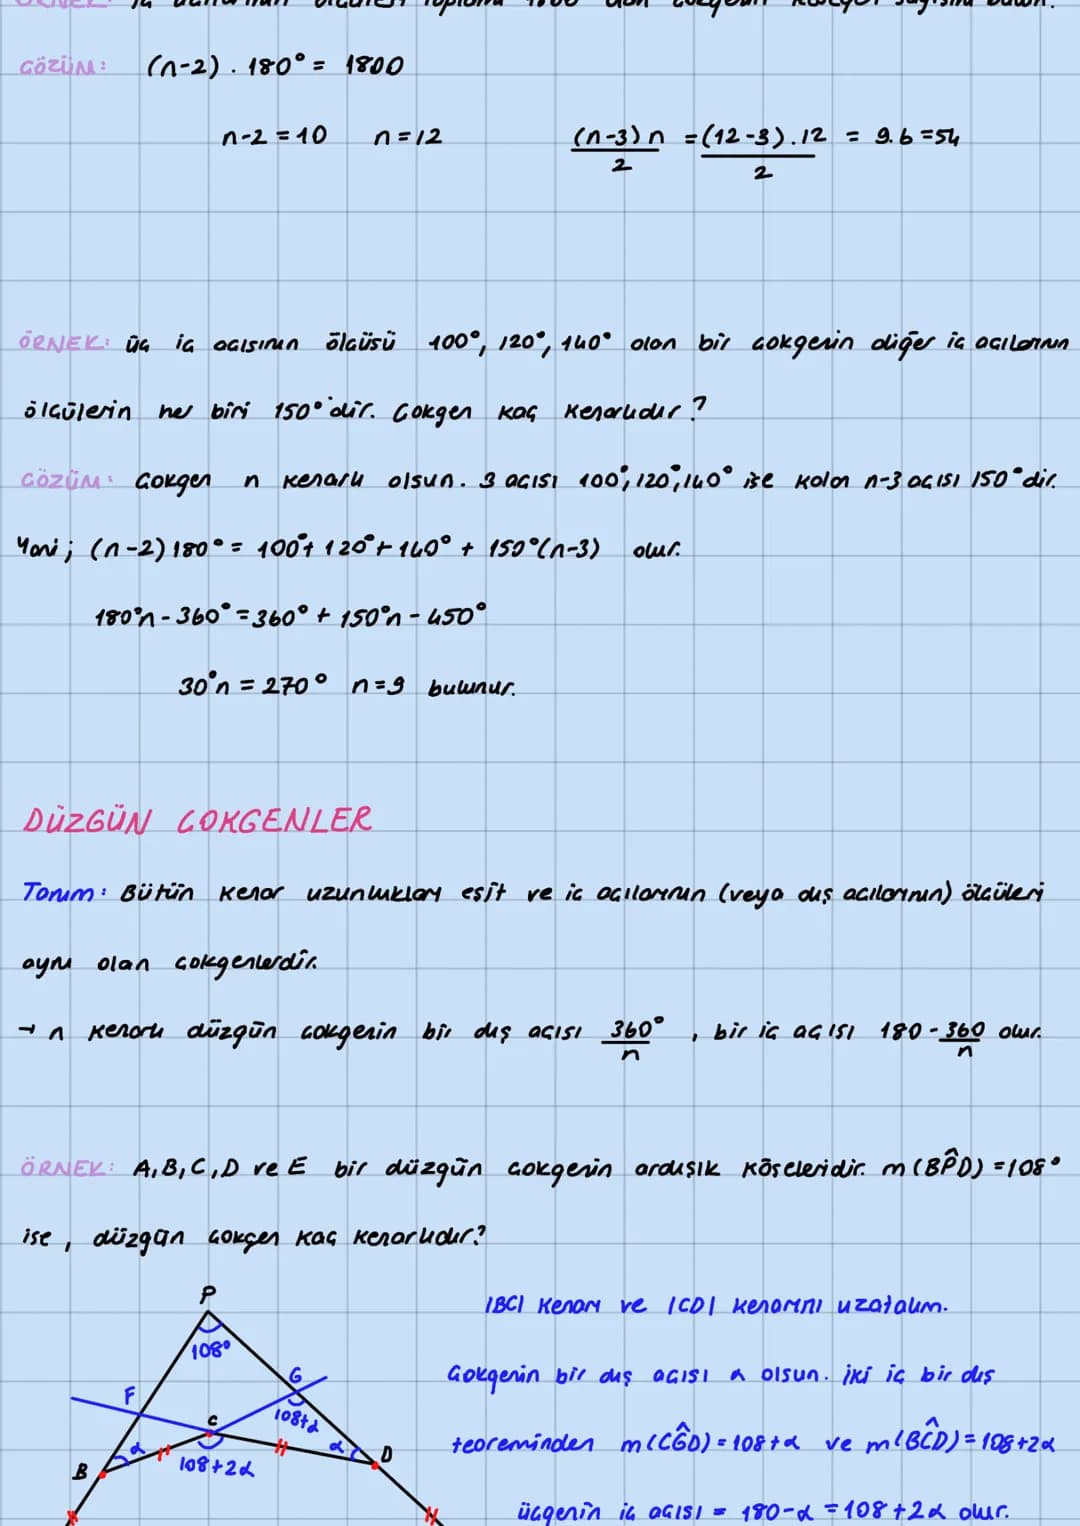 ÖRNEK: İç açılarının ölçüleri toplamı 1800 olan çokgenin köşegen sayısını bulun.
ÇÖZÜM: (n-2) . 180° = 1800
n-2 = 10 n = 12 (n-3) n / 2 = (12-3).12 / 2 = 9.6 = 54
ÖRNEK: üç iç açısının ölçüsü 100°, 120°, 140° olan bir çokgenin diğer iç açılarının
ölçülerin her biri 150°'dir. Çokgen kaç kenarlıdır?
ÇÖZÜM: Çokgen n kenarlı olsun. 3 açısı 100°, 120°, 140° ise kalan n-3 açısı 150°dir.
Yani; (n-2) 180° = 100° + 120° + 140° + 150°(n-3) olur.
180°n - 360° = 360° + 150°n - 450°
30°n = 270° n=9 bulunur.
DÜZGÜN ÇOKGENLER
Tanım: Bütün kenar uzunlukları eşit ve iç açılarının (veya dış açılarının) ölçüleri
aynı olan çokgenlerdir.
→ n kenarlı düzgün çokgenin bir dış açısı 360° / n , bir iç açısı 180 - 360 / n olur.
ÖRNEK: A, B, C, D ve E bir düzgün çokgenin ardışık köşeleridir. m(BP̂D) = 108°
ise, düzgün çokgen kaç kenarlıdır?
P
108°
F
G
C
108+α
α
α
B
D
108+2α
|BC| kenarı ve |CD| kenarını uzatalım.
Çokgenin bir dış açısı α olsun. iki iç bir dış
teoreminden m(CĜD) = 108+α ve m(BĈD) = 108+2α
üçgenin iç açısı = 180-α = 108+2α olur.